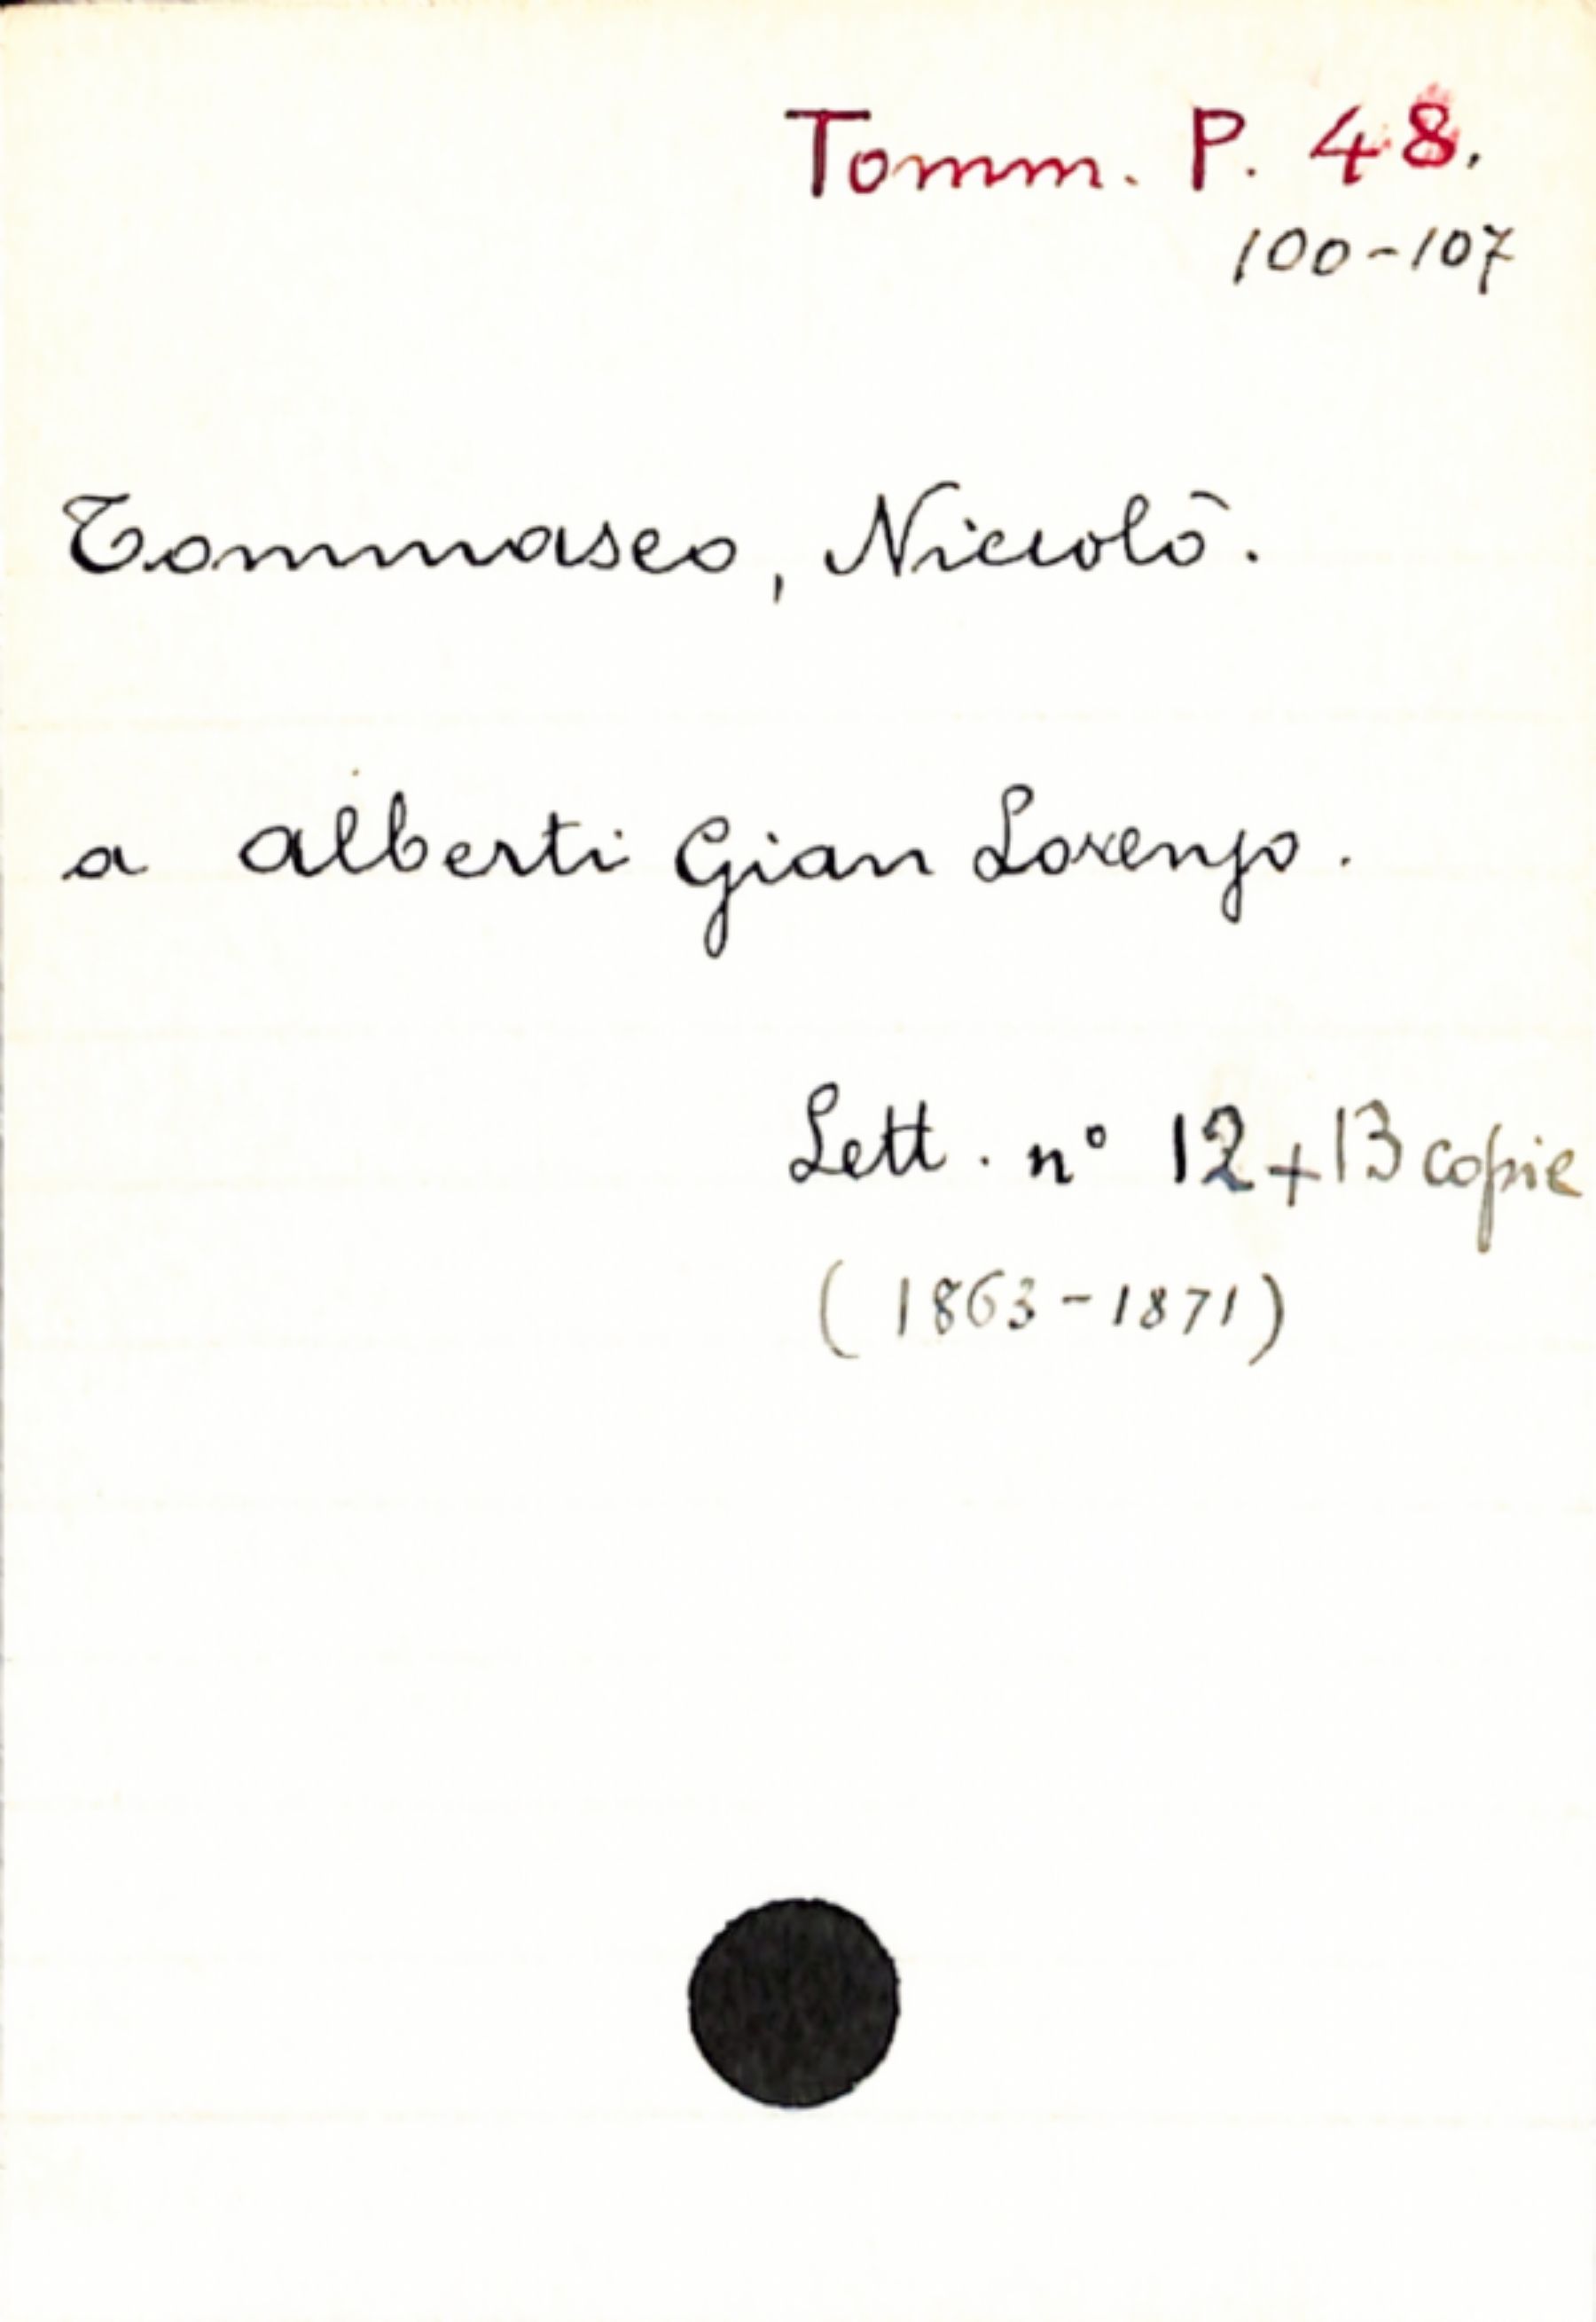 Tomm. P. 48.
100-107
Tommaseo, Niccolò.
a Alberti Gian Lorenzo.
Lett. n° 12+13 copie
(1863-1871)